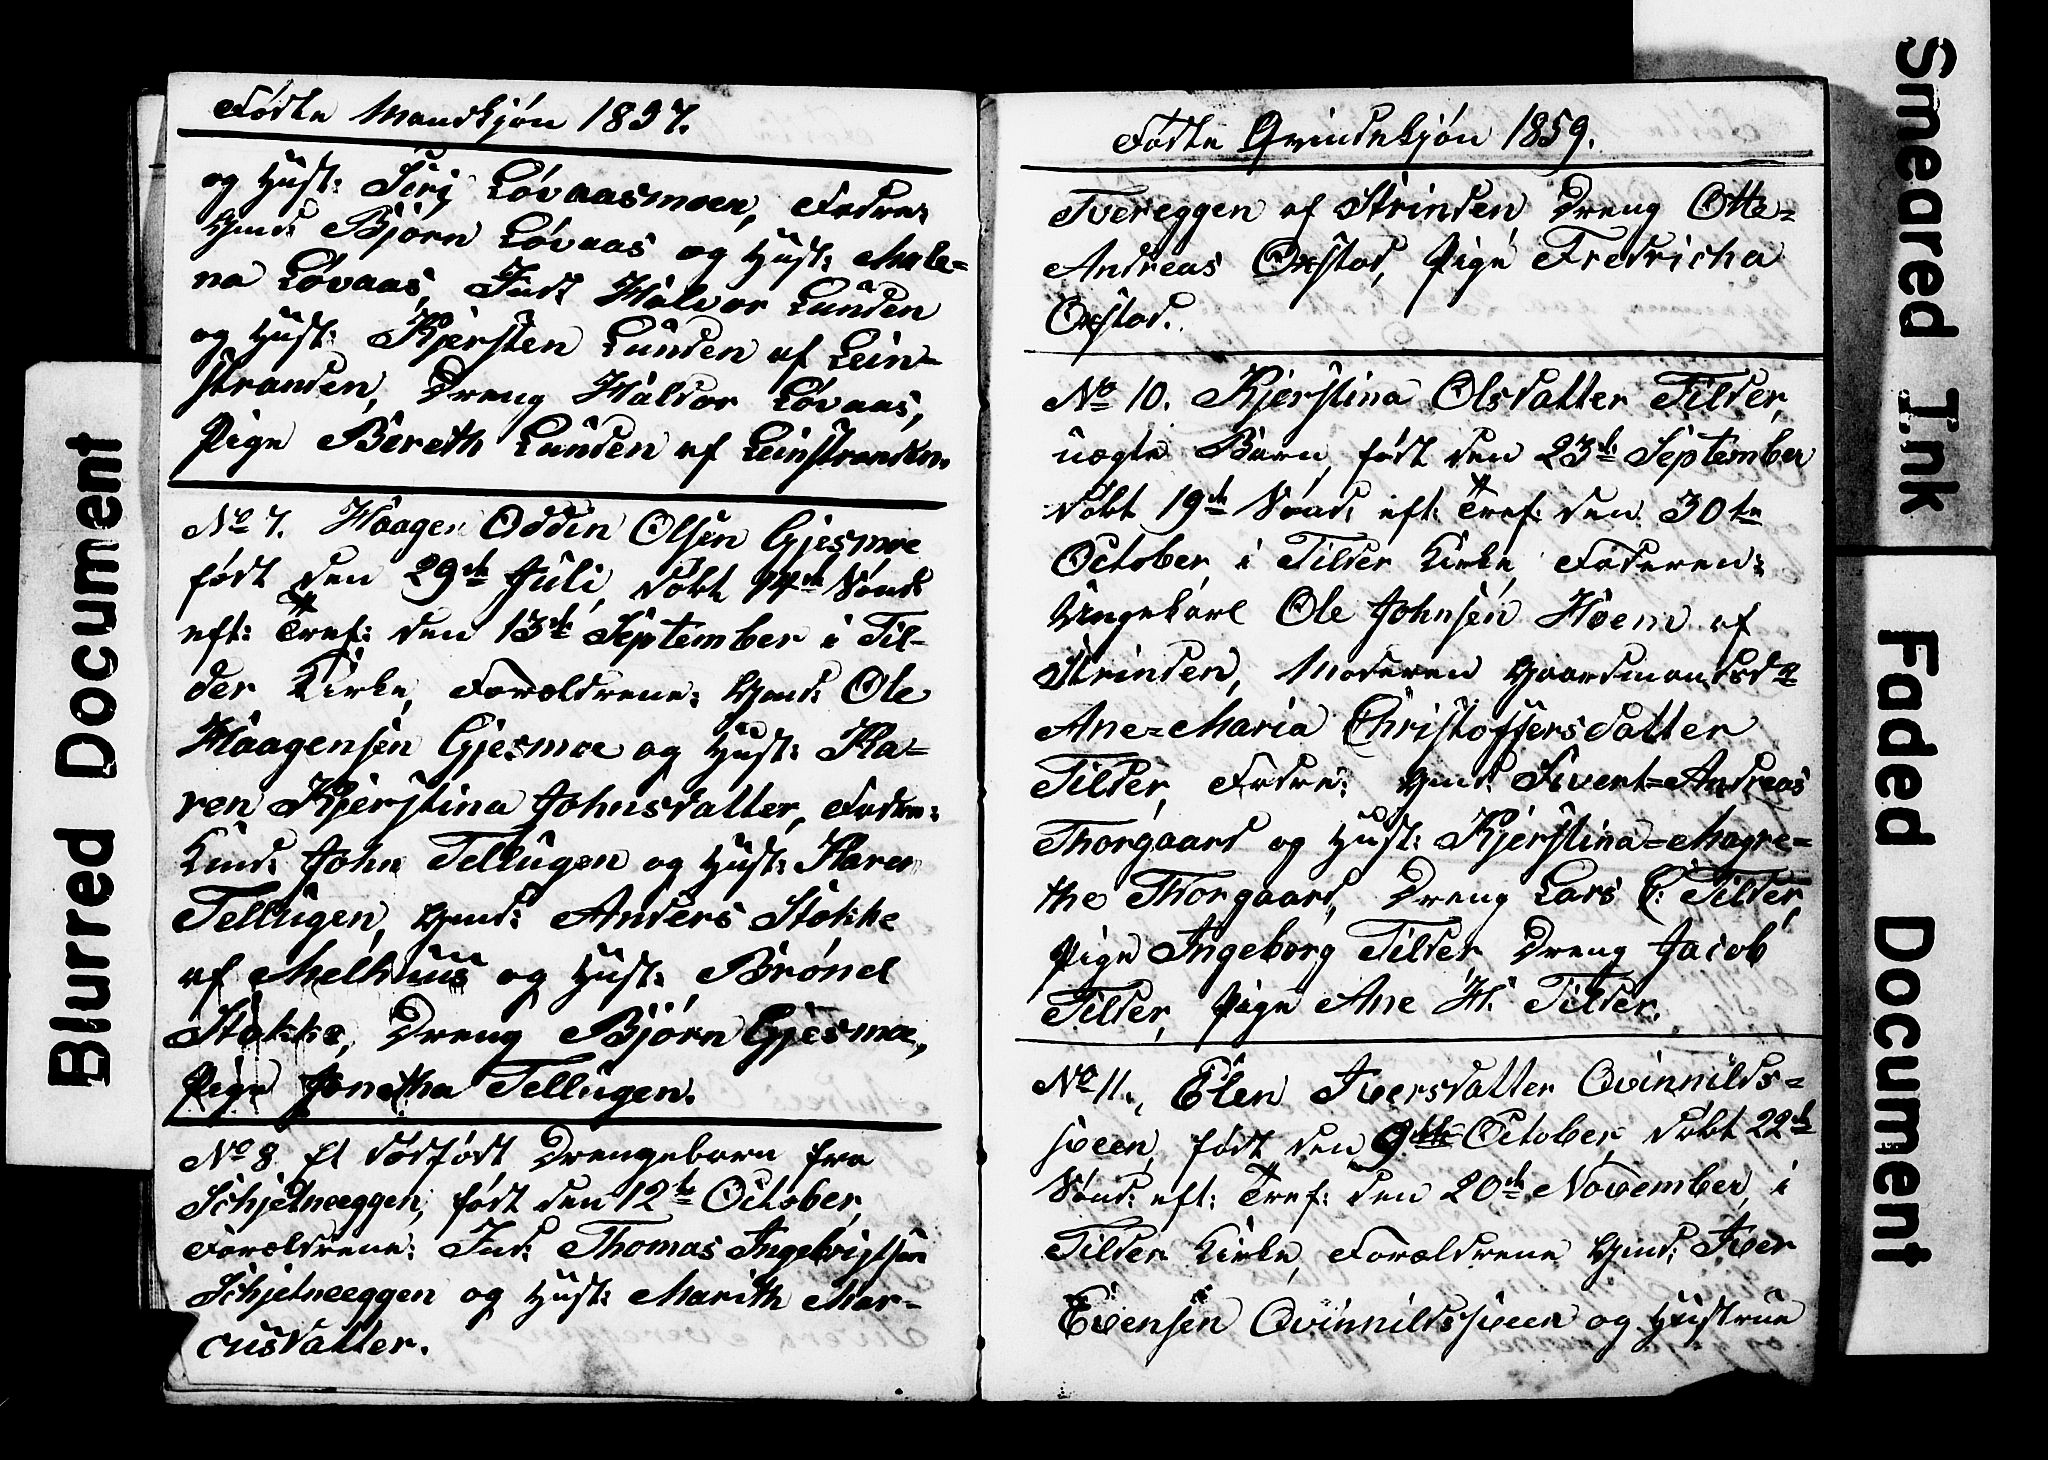 Fødte Mandkjøn 1857.
og Hust: Siri Løvaasmoen, Fadre:
Gmd: Bjørn Løvaas og Hust: Male=
na Løvaas, Indt Halvor Lunden
og Hust: Kjersten Lunden af Lein-
stranden, Dreng Haldor Løvaas,
Pige Bereth Lunden af Leinstranden.
No 7. Haagen Oddin Olsen Gjesmoe
født den 29de Juli, døbt 14de Sønd:
eft: Tref: den 13de September i Til-
der Kirke, Forældrene: Gmd: Ole
Haagensen Gjesmoe og Hust: Ka=
ren Kjerstina Johnsdatter, Fadre:
Kmd: John Tellugen og Hust: Karen
Tellugen, Gmd: Anders Stokke
af Melhuus og Hust: Brønel
Stokke, Dreng Bjørn Gjesmoe,
Pige Jonetha Tellugen.
No 8 Et dødfødt Drengebarn fra
Schjetneeggen, født den 12te October,
Forældrene: Ind: Thomas Ingebrigtsen
Schjetneeggen og Hust: Marith Mar-
cusdatter.
Fødte Qvindekjøn 1859.
Tvereggen af Strinden, Dreng Otte=
Andreas Oxstad, Pige Fredricha
Oxstad.
No 10. Kjerstina Olsdatter Tilder,
uægte Barn, født den 23de September
døbt 19de Sønd: eft: Tref: den 30te
October i Tilder Kirke, Faderen:
Ungekarl Ole Johnsen Hoem af
Strinden, Moderen Gaardmandsdr
Ane=Maria Christoffersdatter
Tilder, Fadre: Gmd: Sivert=Andreas
Thorgaard og Hust: Kjerstina=Magre=
the Thorgaard, Dreng Lars C. Tilder,
Pige Ingeborg Tilder Dreng Jacob
Tilder, Pige Ane H. Tilder.
No 11., Elen Iversdatter Qvinnilds=
sveen, født den 9de October, døbt 22de
Sønd: eft: Tref: den 20de November, i
Tilder Kirke, Forældrene Gmd: Iver
Evensen Qvinnildssveen og Hustrue
Blurred Document
Smeared Ink
Faded Document